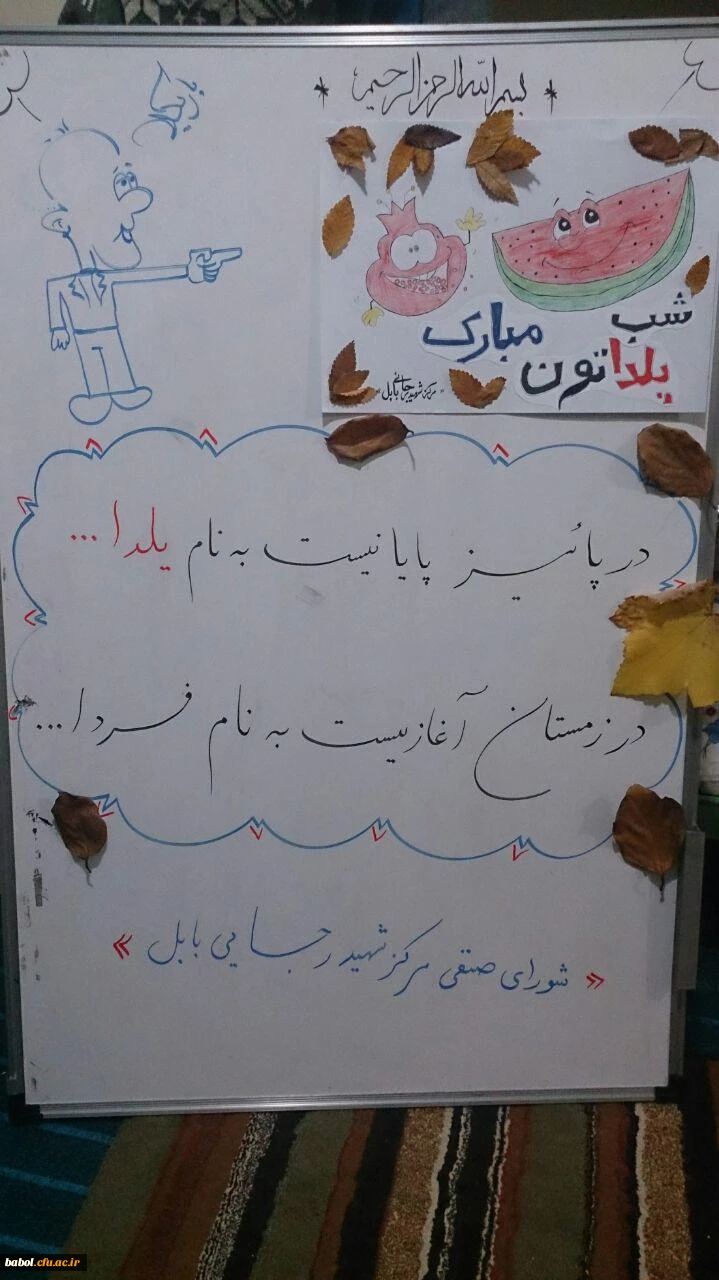 بسم الله الرحمن الرحیم
شب
یلداتون مبارک
مرکز شهید رجائی بابل
در پائیز پایانیست به نام یلدا ...
در زمستان آغازیست به نام فردا ...
« شورای صنفی مرکز شهید رجایی بابل »
babol.cfu.ac.ir